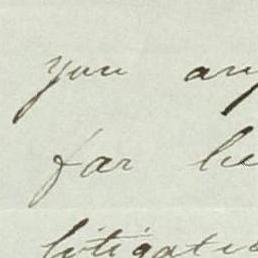 you any
far be
litigatio